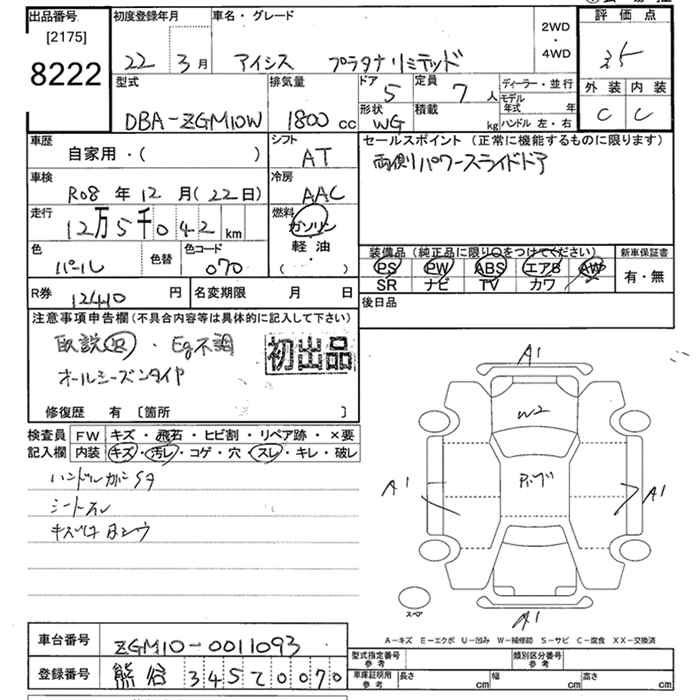 出品番号 [2175] 8222
初度登録年月 22年 3月
車名・グレード アイシス プラタナリミテッド
2WD・4WD
評価点 3.5
外装 C 内装 C
型式 DBA-ZGM10W
排気量 1800cc
ドア 5
形状 WG
定員 7人
積載 kg
ディーラー・並行
モデル年式 年
ハンドル 左・右
車歴 自家用・( )
シフト AT
セールスポイント (正常に機能するものに限ります)
両側パワースライドドア
車検 R08年12月(22日)
冷房 AAC
走行 12万5千042km
燃料 ガソリン 軽油 ( ・ )
色 パール 色替
色コード 070
装備品(純正品に限り○をつけてください)
PS PW ABS エアB AW
SR ナビ TV カワ
新車保証書 有・無
R券 12410円
名変期限 月 日
後日品
注意事項申告欄(不具合内容等は具体的に記入して下さい)
取説 ・Eg不調
初出品
オールシーズンタイヤ
修復歴 有 [箇所 ]
検査員記入欄
FW キズ・飛石・ヒビ割・リペア跡・×要
内装 キズ・汚レ・コゲ・穴・スレ・キレ・破レ
シートスレ
A1
W2
A1
A1
A1
スペア
A-キズ E-エクボ U-凹み W-補修跡 S-サビ C-腐食 XX-交換済
車台番号 ZGM10-0011093
登録番号 熊谷 345 0070
型式指定番号 参考
類別区分番号 参考
車庫証明用 参考 長さ cm 幅 cm 高さ cm